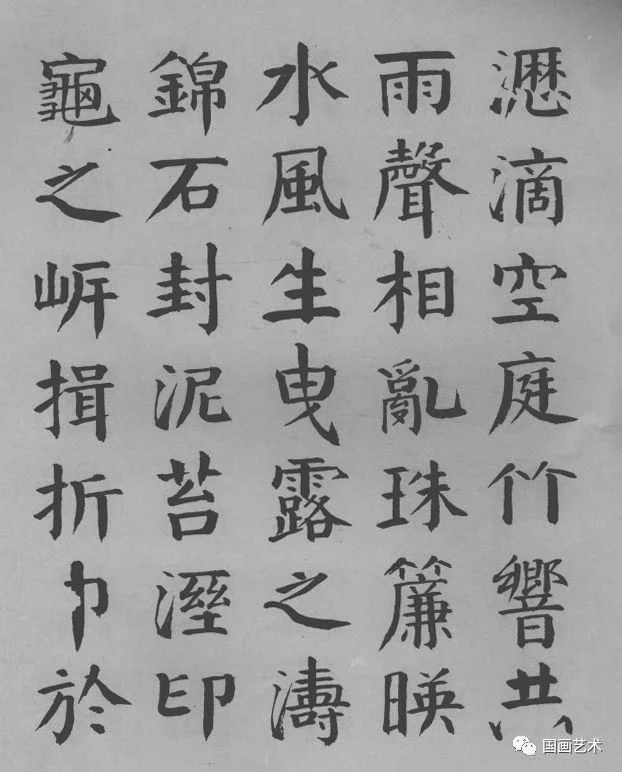 瀝滴空庭竹響共
雨聲相亂珠簾暎
水風生曳露之濤
錦石封泥苔溼印
龜之岸揖折巾於
国画艺术